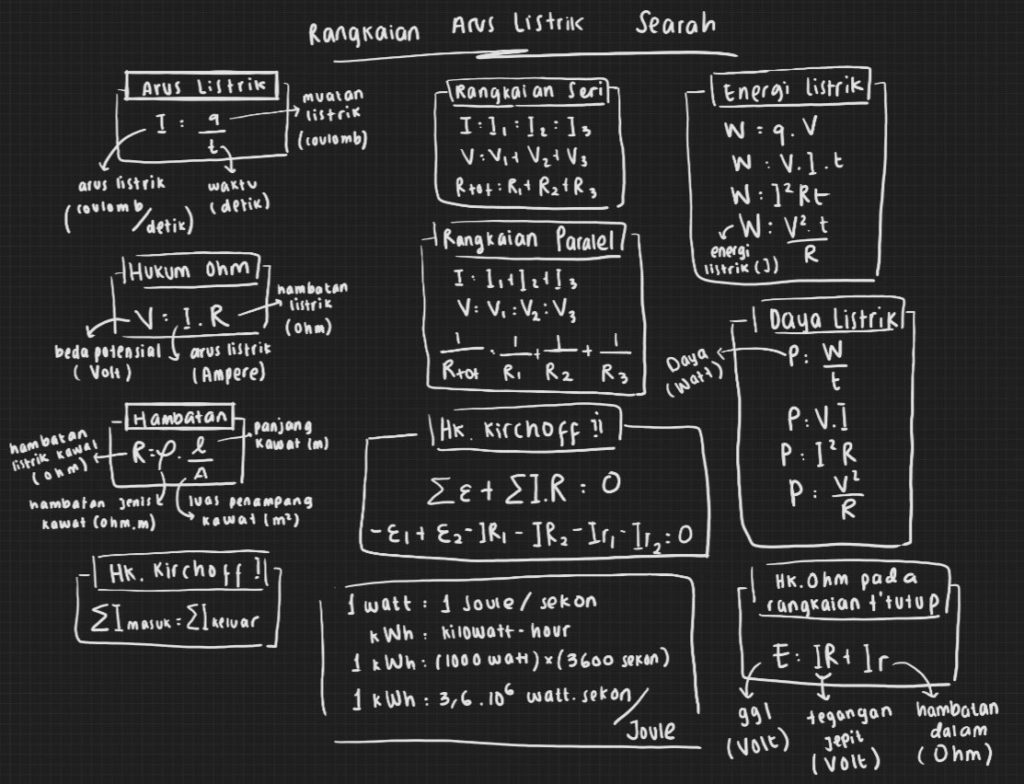 Rangkaian Arus Listrik Searah
Arus Listrik
I : q/t
muatan
listrik
(coulomb)
arus listrik
(coulomb/detik)
waktu
(detik)
Hukum Ohm
V : I . R
hambatan
listrik
(Ohm)
beda potensial
(Volt)
arus listrik
(Ampere)
Hambatan
R = ρ . l/A
panjang
kawat (m)
hambatan
listrik kawat
(ohm)
hambatan jenis
kawat (ohm.m)
luas penampang
kawat (m²)
Hk. Kirchoff I
ΣI masuk = ΣI keluar
Rangkaian Seri
I : I₁ : I₂ : I₃
V : V₁ + V₂ + V₃
Rtot : R₁ + R₂ + R₃
Rangkaian Paralel
I : I₁ + I₂ + I₃
V : V₁ : V₂ : V₃
1/Rtot : 1/R₁ + 1/R₂ + 1/R₃
Hk. Kirchoff II
Σε + ΣI.R : 0
-ε₁ + ε₂ - IR₁ - IR₂ - Ir₁ - Ir₂ : 0
1 watt : 1 Joule / sekon
kWh : kilowatt-hour
1 kWh : (1000 watt) × (3600 sekon)
1 kWh : 3,6 . 10⁶ watt. sekon/
Joule
Energi listrik
W : q . V
W : V . I . t
W : I² Rt
W : V² . t/R
energi
listrik (J)
Daya Listrik
P : W/t
Daya
(watt)
P : V . I
P : I² R
P : V²/R
Hk. Ohm pada
rangkaian t'tutup
E : IR + Ir
ggl
(Volt)
tegangan
jepit
(Volt)
hambatan
dalam
(Ohm)